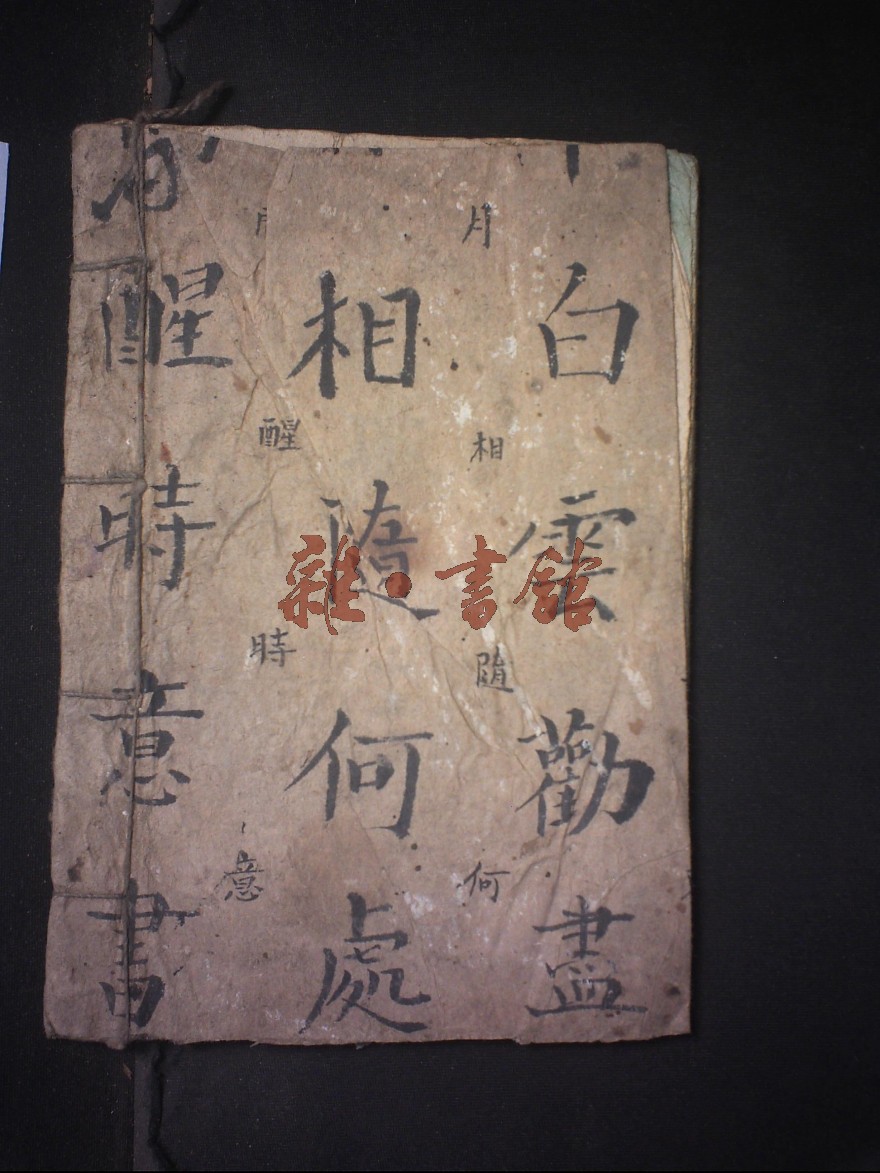 白雲勸盡
月相隨何
相隨何處
醒時意
醒時意書
雜·書館